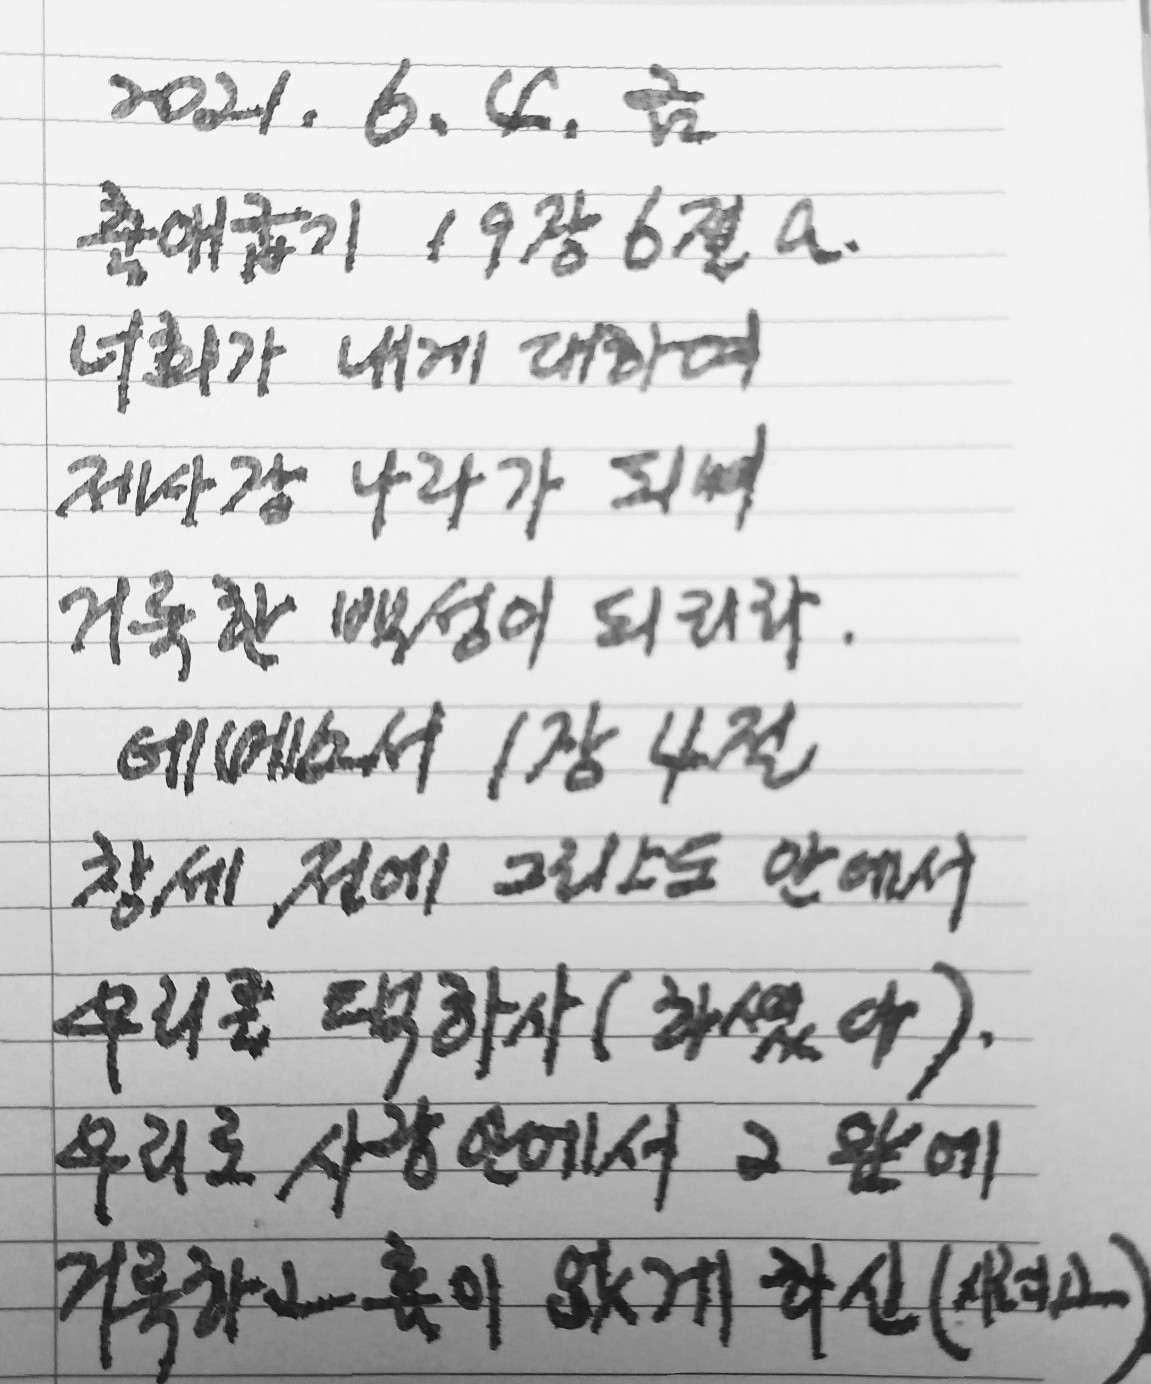 2021. 6. 4. 금
출애굽기 19장 6절 a.
너희가 내게 대하여
제사장 나라가 되며
거룩한 백성이 되리라.
에베소서 1장 4절
창세 전에 그리스도 안에서
우리를 택하사 (하셨어).
우리로 사랑 안에서 그 앞에
거룩하고 흠이 없게 하신